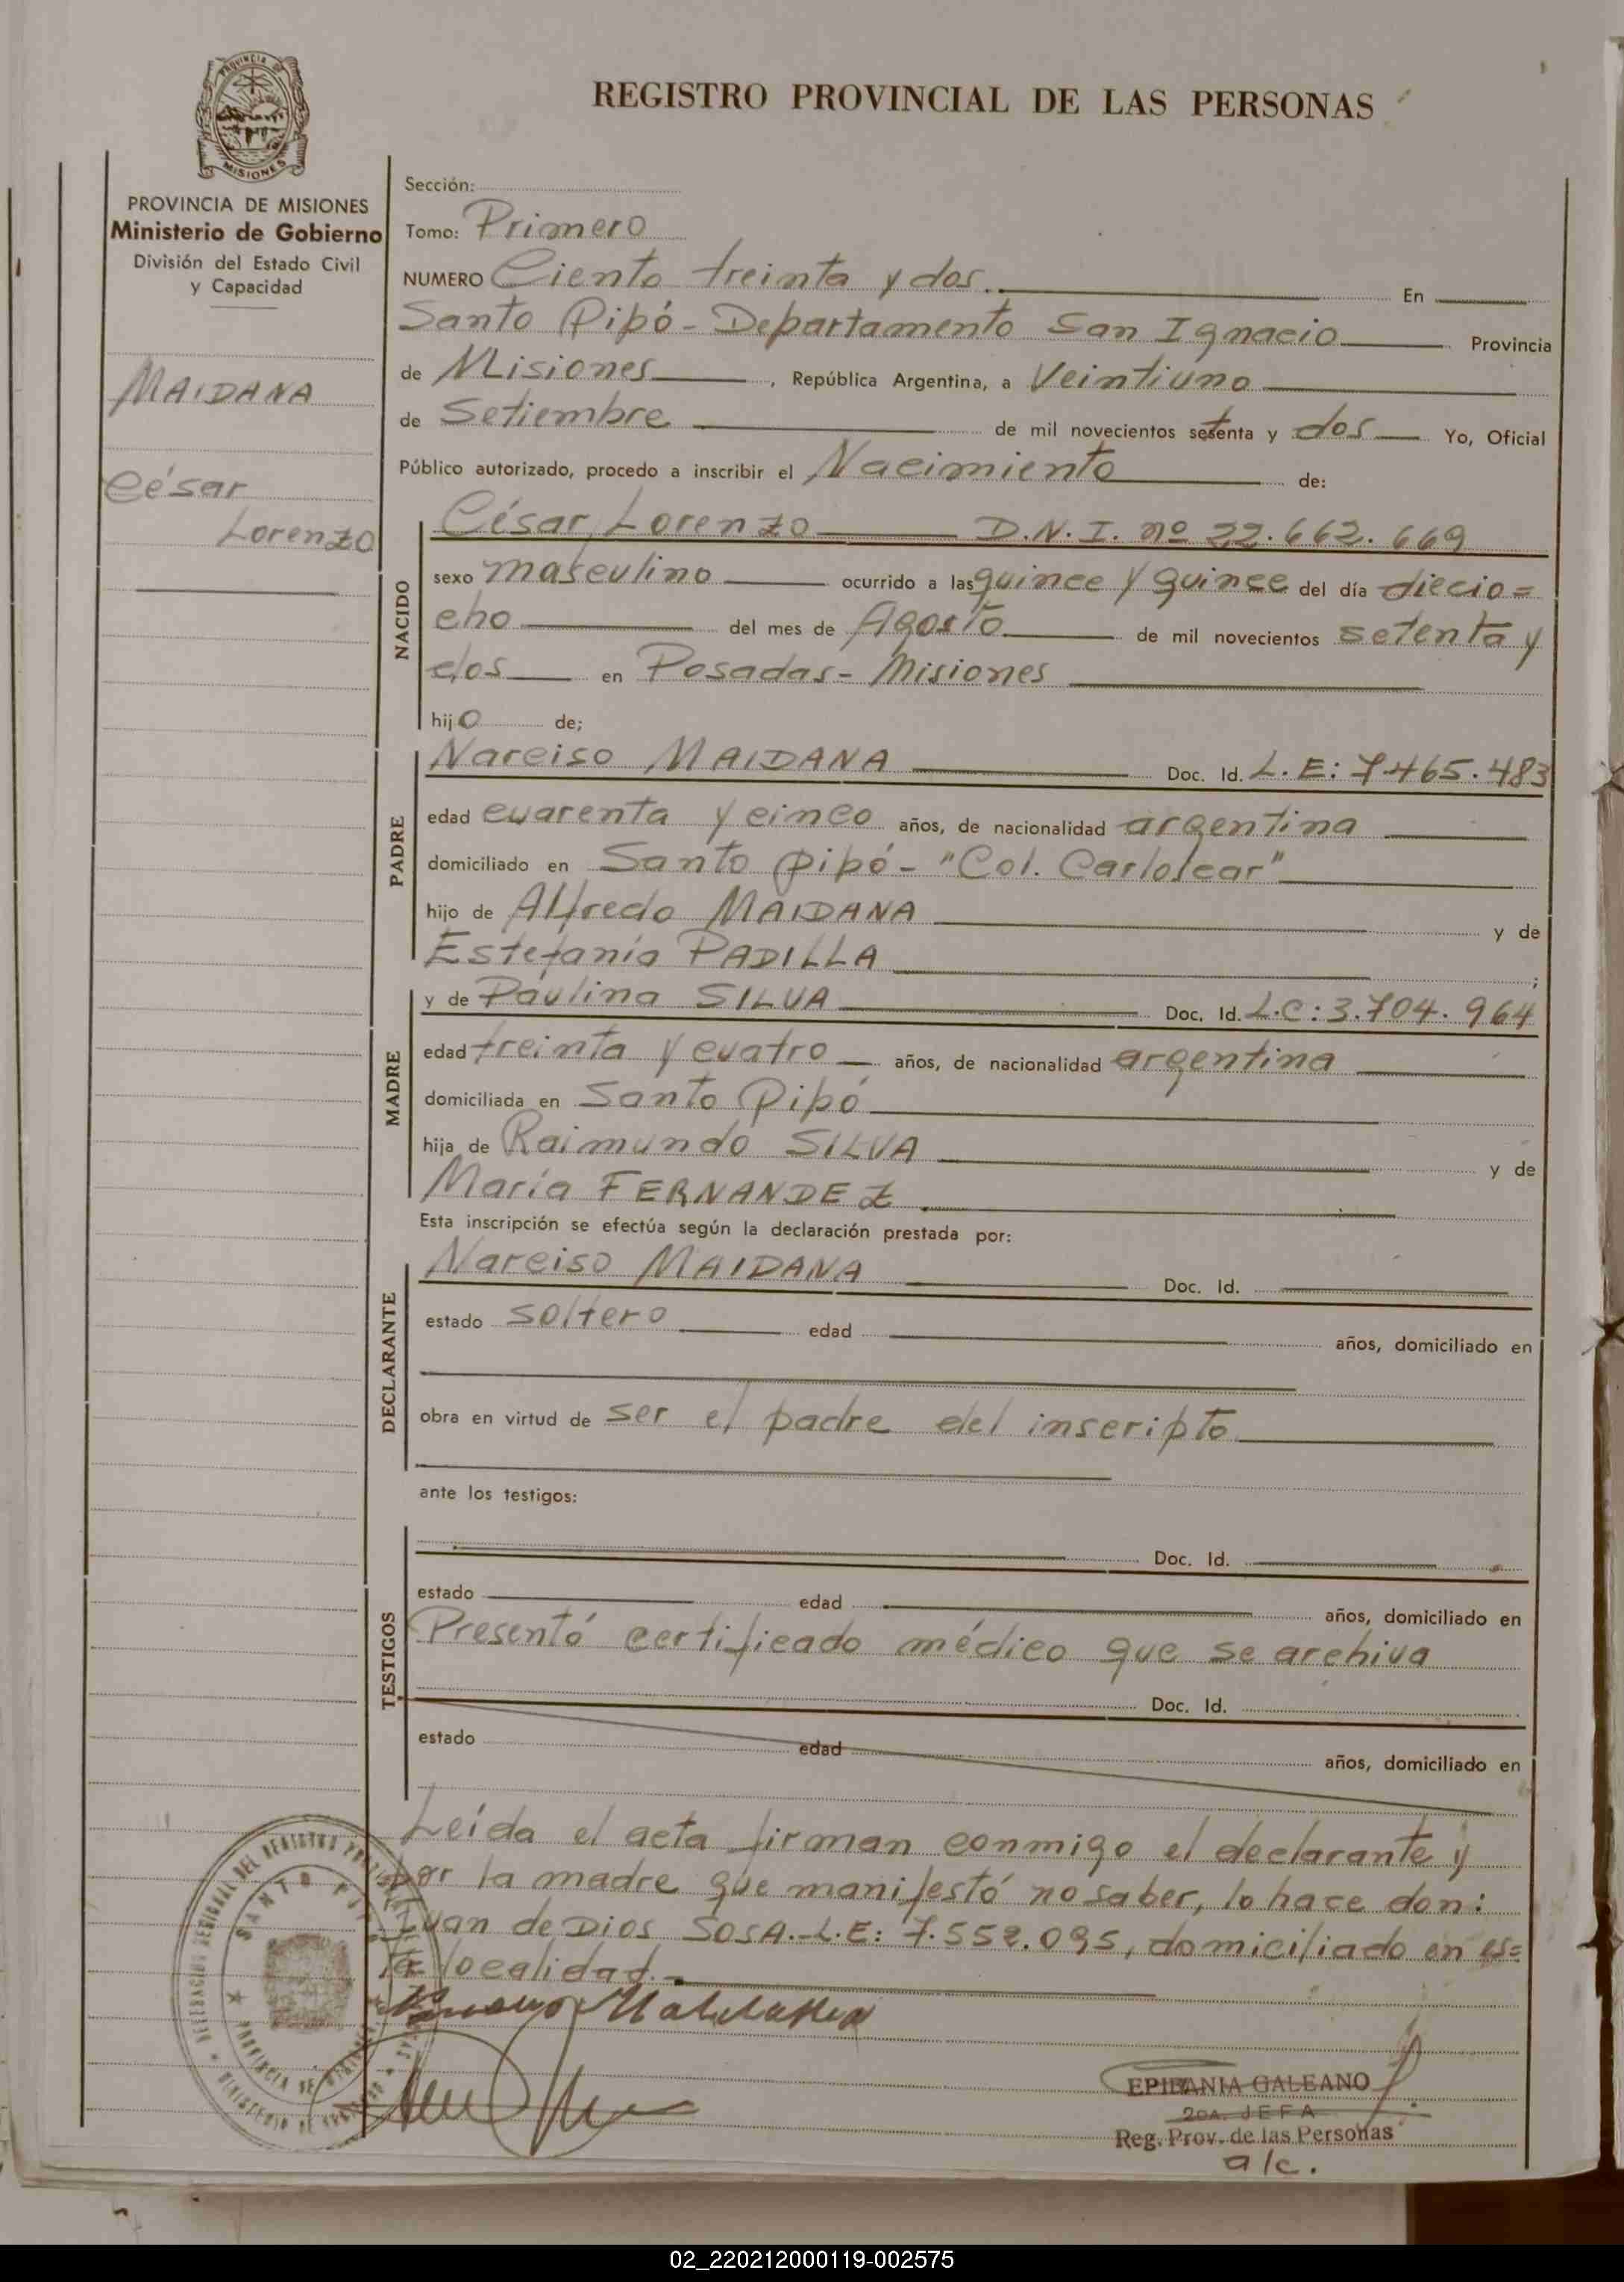 PROVINCIA DE
MISIONES
REGISTRO PROVINCIAL DE LAS PERSONAS
PROVINCIA DE MISIONES
Ministerio de Gobierno
División del Estado Civil
y Capacidad
MAIDANA
César
Lorenzo
Sección:
Tomo: Primero
NUMERO Ciento treinta y dos. En
Santo Pipó - Departamento San Ignacio Provincia
de Misiones, República Argentina, a Veintiuno
de Setiembre de mil novecientos setenta y dos Yo, Oficial
Público autorizado, procedo a inscribir el Nacimiento de:
NACIDO
César Lorenzo D.N.I. nº 22.662.669
sexo masculino ocurrido a las quince y quince del día diecio=
cho del mes de Agosto de mil novecientos setenta y
dos en Posadas - Misiones
hijo de;
PADRE
Narciso MAIDANA Doc. Id. L.E: 7.465.483
edad cuarenta y cinco años, de nacionalidad argentina
domiciliado en Santo Pipó - "Col. Carloscar"
hijo de Alfredo MAIDANA y de
Estefanía PADILLA ;
MADRE
y de Paulina SILVA Doc. Id. L.C: 3.704.964
edad treinta y cuatro años, de nacionalidad argentina
domiciliada en Santo Pipó
hija de Raimundo SILVA y de
María FERNANDEZ
Esta inscripción se efectúa según la declaración prestada por:
DECLARANTE
Narciso MAIDANA Doc. Id.
estado soltero edad años, domiciliado en
obra en virtud de ser el padre del inscripto
ante los testigos:
TESTIGOS
Doc. Id.
estado edad años, domiciliado en
Presentó certificado médico que se archiva
Doc. Id.
estado edad años, domiciliado en
Leída el acta firman conmigo el declarante y
por la madre que manifestó no saber, lo hace don:
Juan de Dios SOSA.-L.E: 7.552.095, domiciliado en es=
ta localidad.
SANTO PIPO
PROVINCIA DE MISIONES
EPIFANIA GALEANO
2DA. JEFA
Reg. Prov. de las Personas
a/c.
02_220212000119-002575